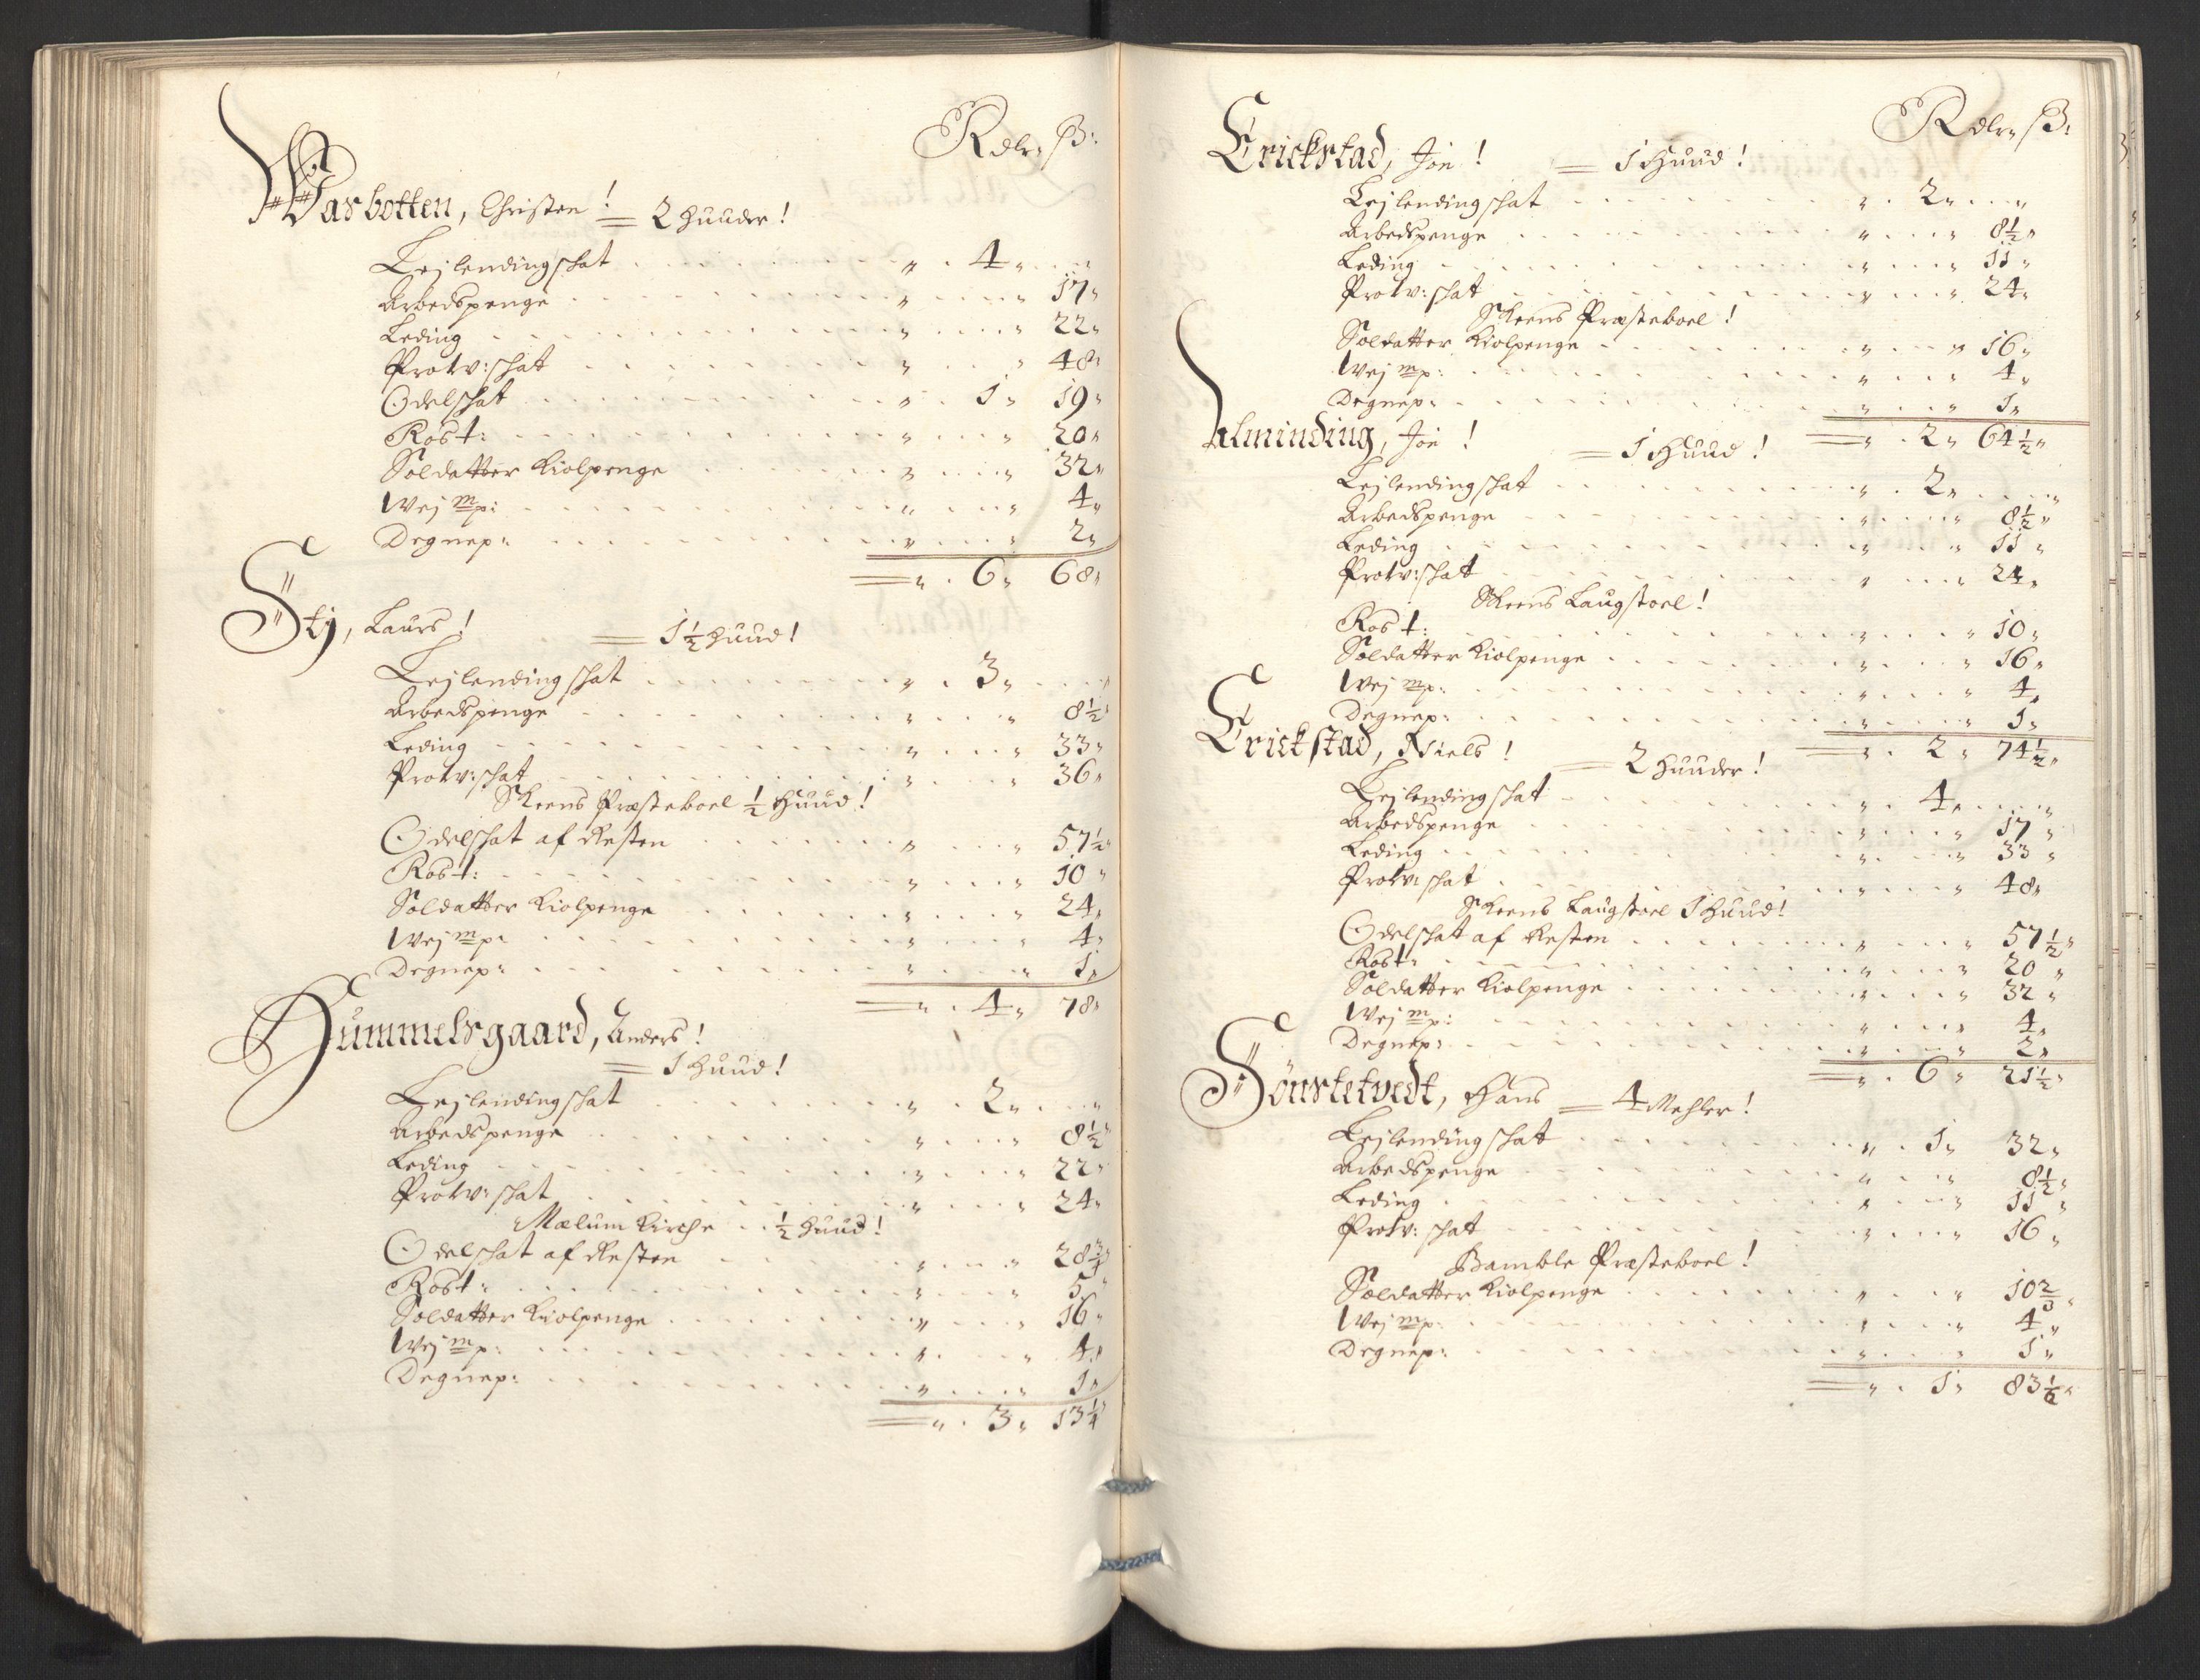 Rdlr: ß:
Wasbotten, Christen! = 2 huuder!
Lejlendingschat 4
Arbedspenge 17
Leding 22
Protv: schat 48
Odelschat 1 19
Rost: 20
Soldatter Kiolpenge 32
Wej mp: 4
Degnep: 2
= 6 68
Stj, Laurs! = 1 1/2 huud!
Lejlendingschat 3
Arbedspenge 8 1/2
Leding 33
Protv: schat 36
Skeens Præsteboel 1/2 huud!
Odelschat af Resten 57 1/2
Rost: 10
Soldatter Kiolpenge 24
Wej mp: 4
Degnep: 1
= 4 78
Hummelsgaard, Anders!
= 1 huud!
Lejlendingschat 2
Arbedspenge 8 1/2
Leding 22
Protv: schat 24
Mælum Kirche 1/2 huud!
Odelschat af Resten 28 3/4
Rost: 5
Soldatter Kiolpenge 16
Wej mp: 4
Degnep: 1
= 3 13 1/4
Rdlr: ß:
Erickstad, Jon! = 1 Huud!
Lejlendingschat 2
Arbedspenge 8 1/2
Leding 11
Protv: schat 24
Skeens Præsteboel!
Soldatter Kiolpenge 16
Wej mp: 4
Degnep: 1
= 2 64 1/2
Alminding, Jon! = 1 Huud!
Lejlendingschat 2
Arbedspenge 8 1/2
Leding 11
Protv: schat 24
Skeens Laugstoel!
Rost: 10
Soldatter Kiolpenge 16
Wej mp: 4
Degnep: 1
= 2 74 1/2
Erickstad, Niels! = 2 huuder!
Lejlendingschat 4
Arbedspenge 17
Leding 33
Protv: schat 48
Skeens Laugstoel 1 huud!
Odelschat af Resten 57 1/2
Rost: 20
Soldatter Kiolpenge 32
Wej mp: 4
Degnep: 2
= 6 21 1/2
Sönstetvedt, Hans = 4 Mehler!
Lejlendingschat 1 32
Arbedspenge 8 1/2
Leding 11
Protv: schat 16
Bamble Præsteboel!
Soldatter Kiolpenge 10 2/3
Wej mp: 4
Degnep: 1
= 1 83 1/6